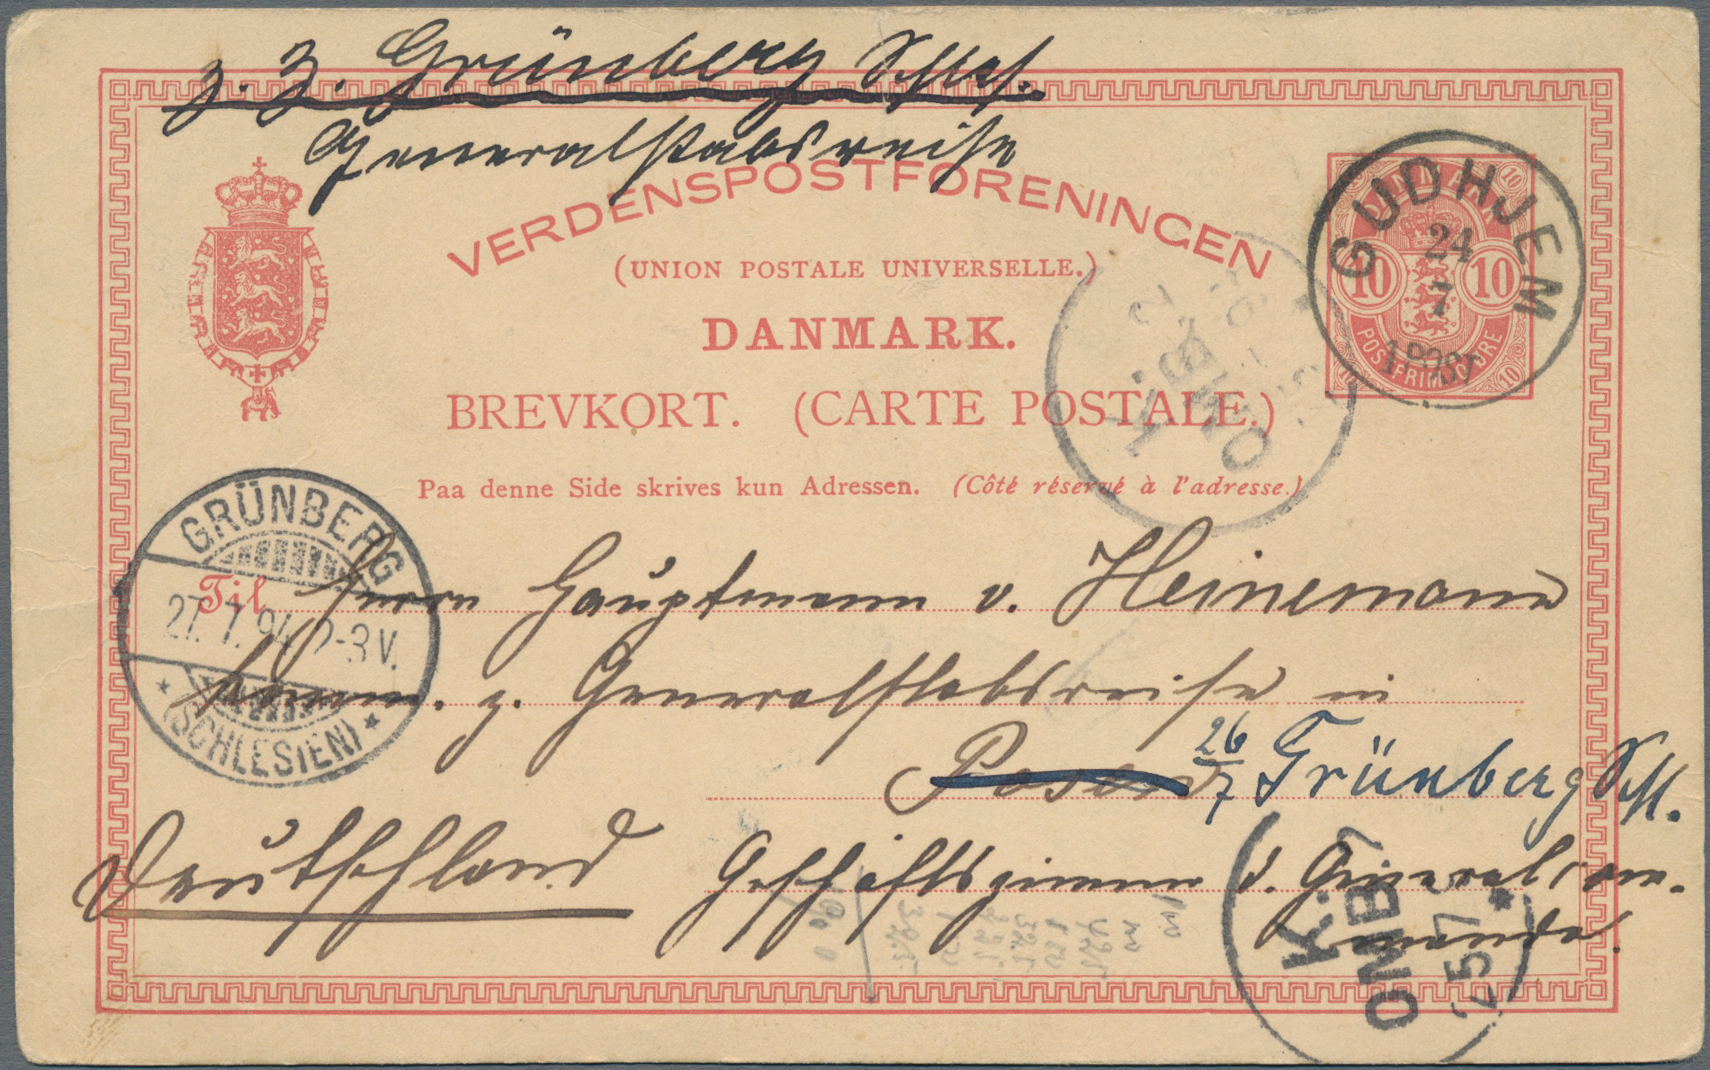 z. Z. Grünberg Schles.
Generalstabsreise
VERDENSPOSTFORENINGEN
(UNION POSTALE UNIVERSELLE.)
DANMARK.
BREVKORT. (CARTE POSTALE.)
Paa denne Side skrives kun Adressen. (Côté réservé à l'adresse.)
GUDHJEM
24
7
1 POST
10 10
POSTFRIM. ØRE
K. OMB. 2
GRÜNBERG
27. 7. 94 2-3 V.
* (SCHLESIEN) *
Til Herrn Hauptmann v. Heinemann
komm. z. Generalstabsreise in
Posen 26/7 Grünberg Schl.
Deutschland Geschäftszimmer d. Generalcom-
mando.
K:
OMB
25 7
*